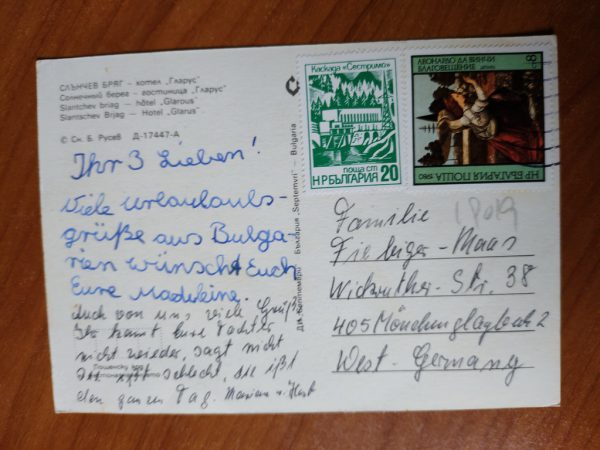 СЛЪНЧЕВ БРЯГ - хотел „Гларус"
Солнечный берег - гостиница „Гларус"
Slantchev briag - hôtel „Glarous"
Slantchev Brjag - Hotel „Glarus"
© Сн. Б. Русев Д-17447-А
Ihr 3 Lieben!
Viele Urlaulaubs-
grüße aus Bulga-
rien wünscht Euch
Eure Madeleine.
Auch von uns viele Grüße
Ihr kennt Eure Tochter
nicht wieder, sagt nicht
schlecht, sie ißt
den ganzen Tag. Marian u. Horst
ДИ „Септември" България „Septemvri" - Bulgaria
Каскада „Сестримо"
поща ст
НР БЪЛГАРИЯ 20
ЛЕОНАРДО ДА ВИНЧИ
БЛАГОВЕЩЕНИЕ
НР БЪЛГАРИЯ ПОЩА 1980
Familie
Fiebiger-Maas
Wickrather-Str. 38
405 Mönchenglagbach 2
West-Germany